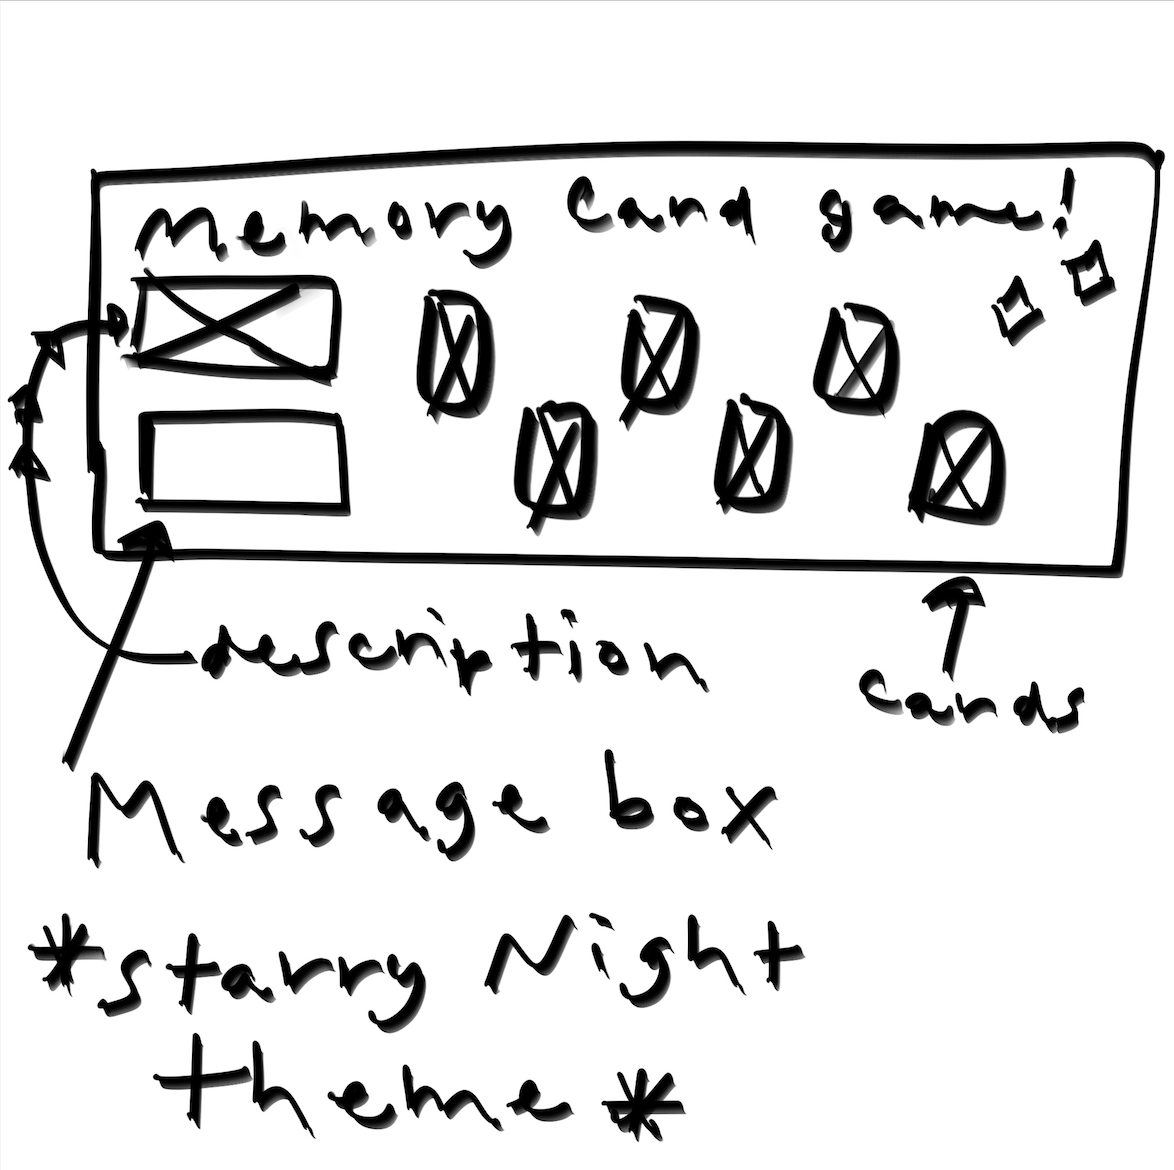 Memory Card game!
description
cards
Message box
*starry Night
theme*